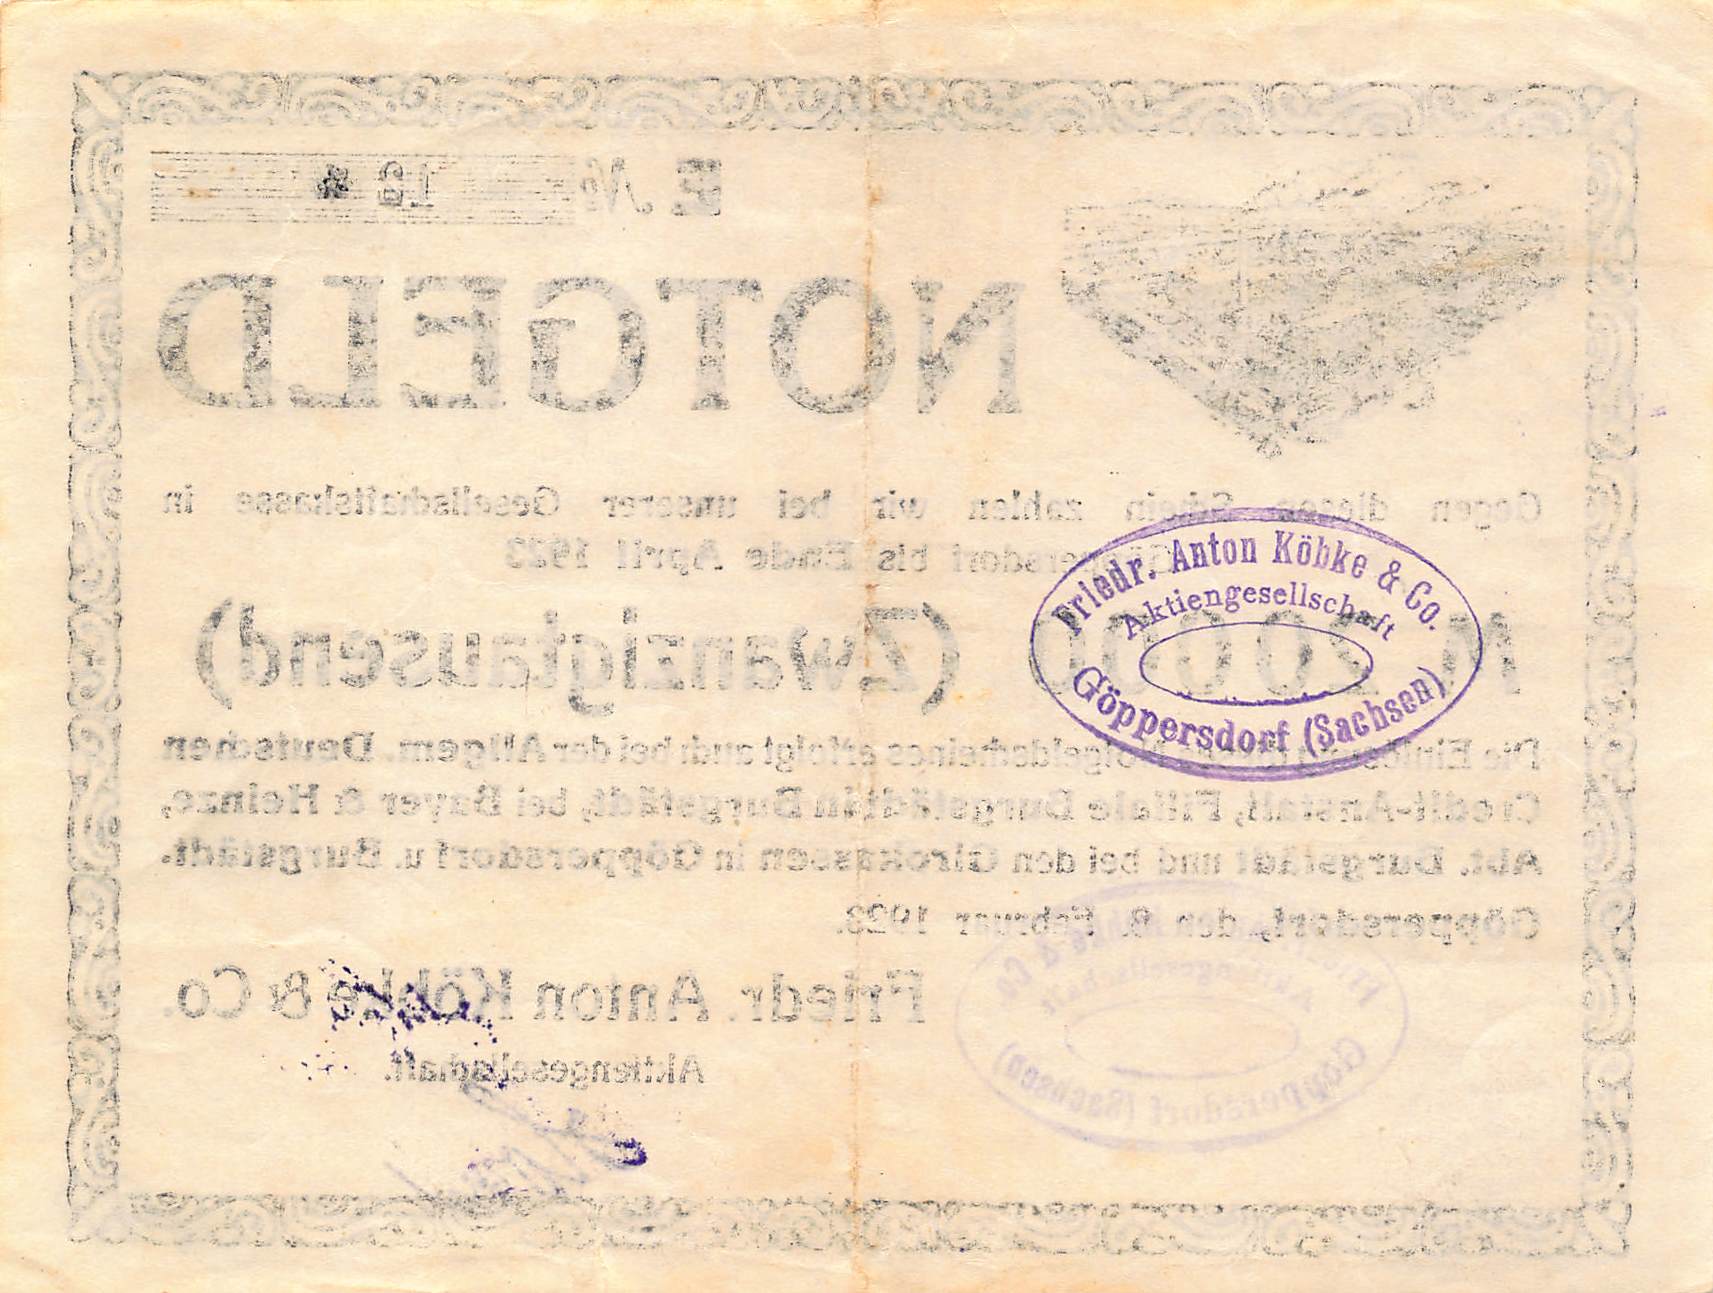 E № 19 *
NOTGELD
Gegen diesen Schein zahlen wir bei unserer Gesellschaftskasse in
Göppersdorf bis Ende April 1923
M 20000 (Zwanzigtausend)
Die Einlösung dieses Notgeldscheines erfolgt auch bei der Allgem. Deutschen
Credit-Anstalt, Filiale Burgstädt in Burgstädt, bei Bayer & Heinze,
Abt. Burgstädt und bei den Girokassen in Göppersdorf u. Burgstädt.
Göppersdorf, den 8. Februar 1923.
Friedr. Anton Köbke & Co.
Aktiengesellschaft.
Friedr. Anton Köbke & Co.
Aktiengesellschaft
Göppersdorf (Sachsen)
Friedr. Anton Köbke & Co.
Aktiengesellschaft
Göppersdorf (Sachsen)